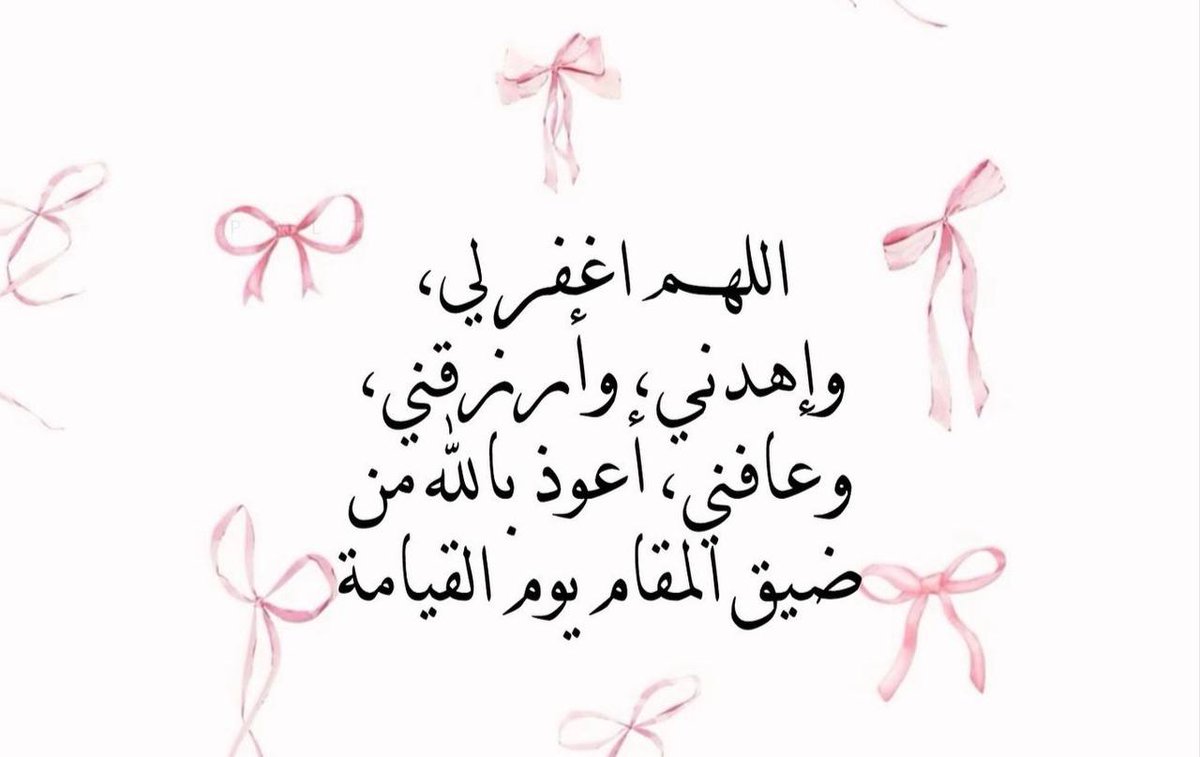 اللهم اغفر لي،
وإهدني، وأرزقني،
وعافني، أعوذ بالله من
ضيق المقام يوم القيامة